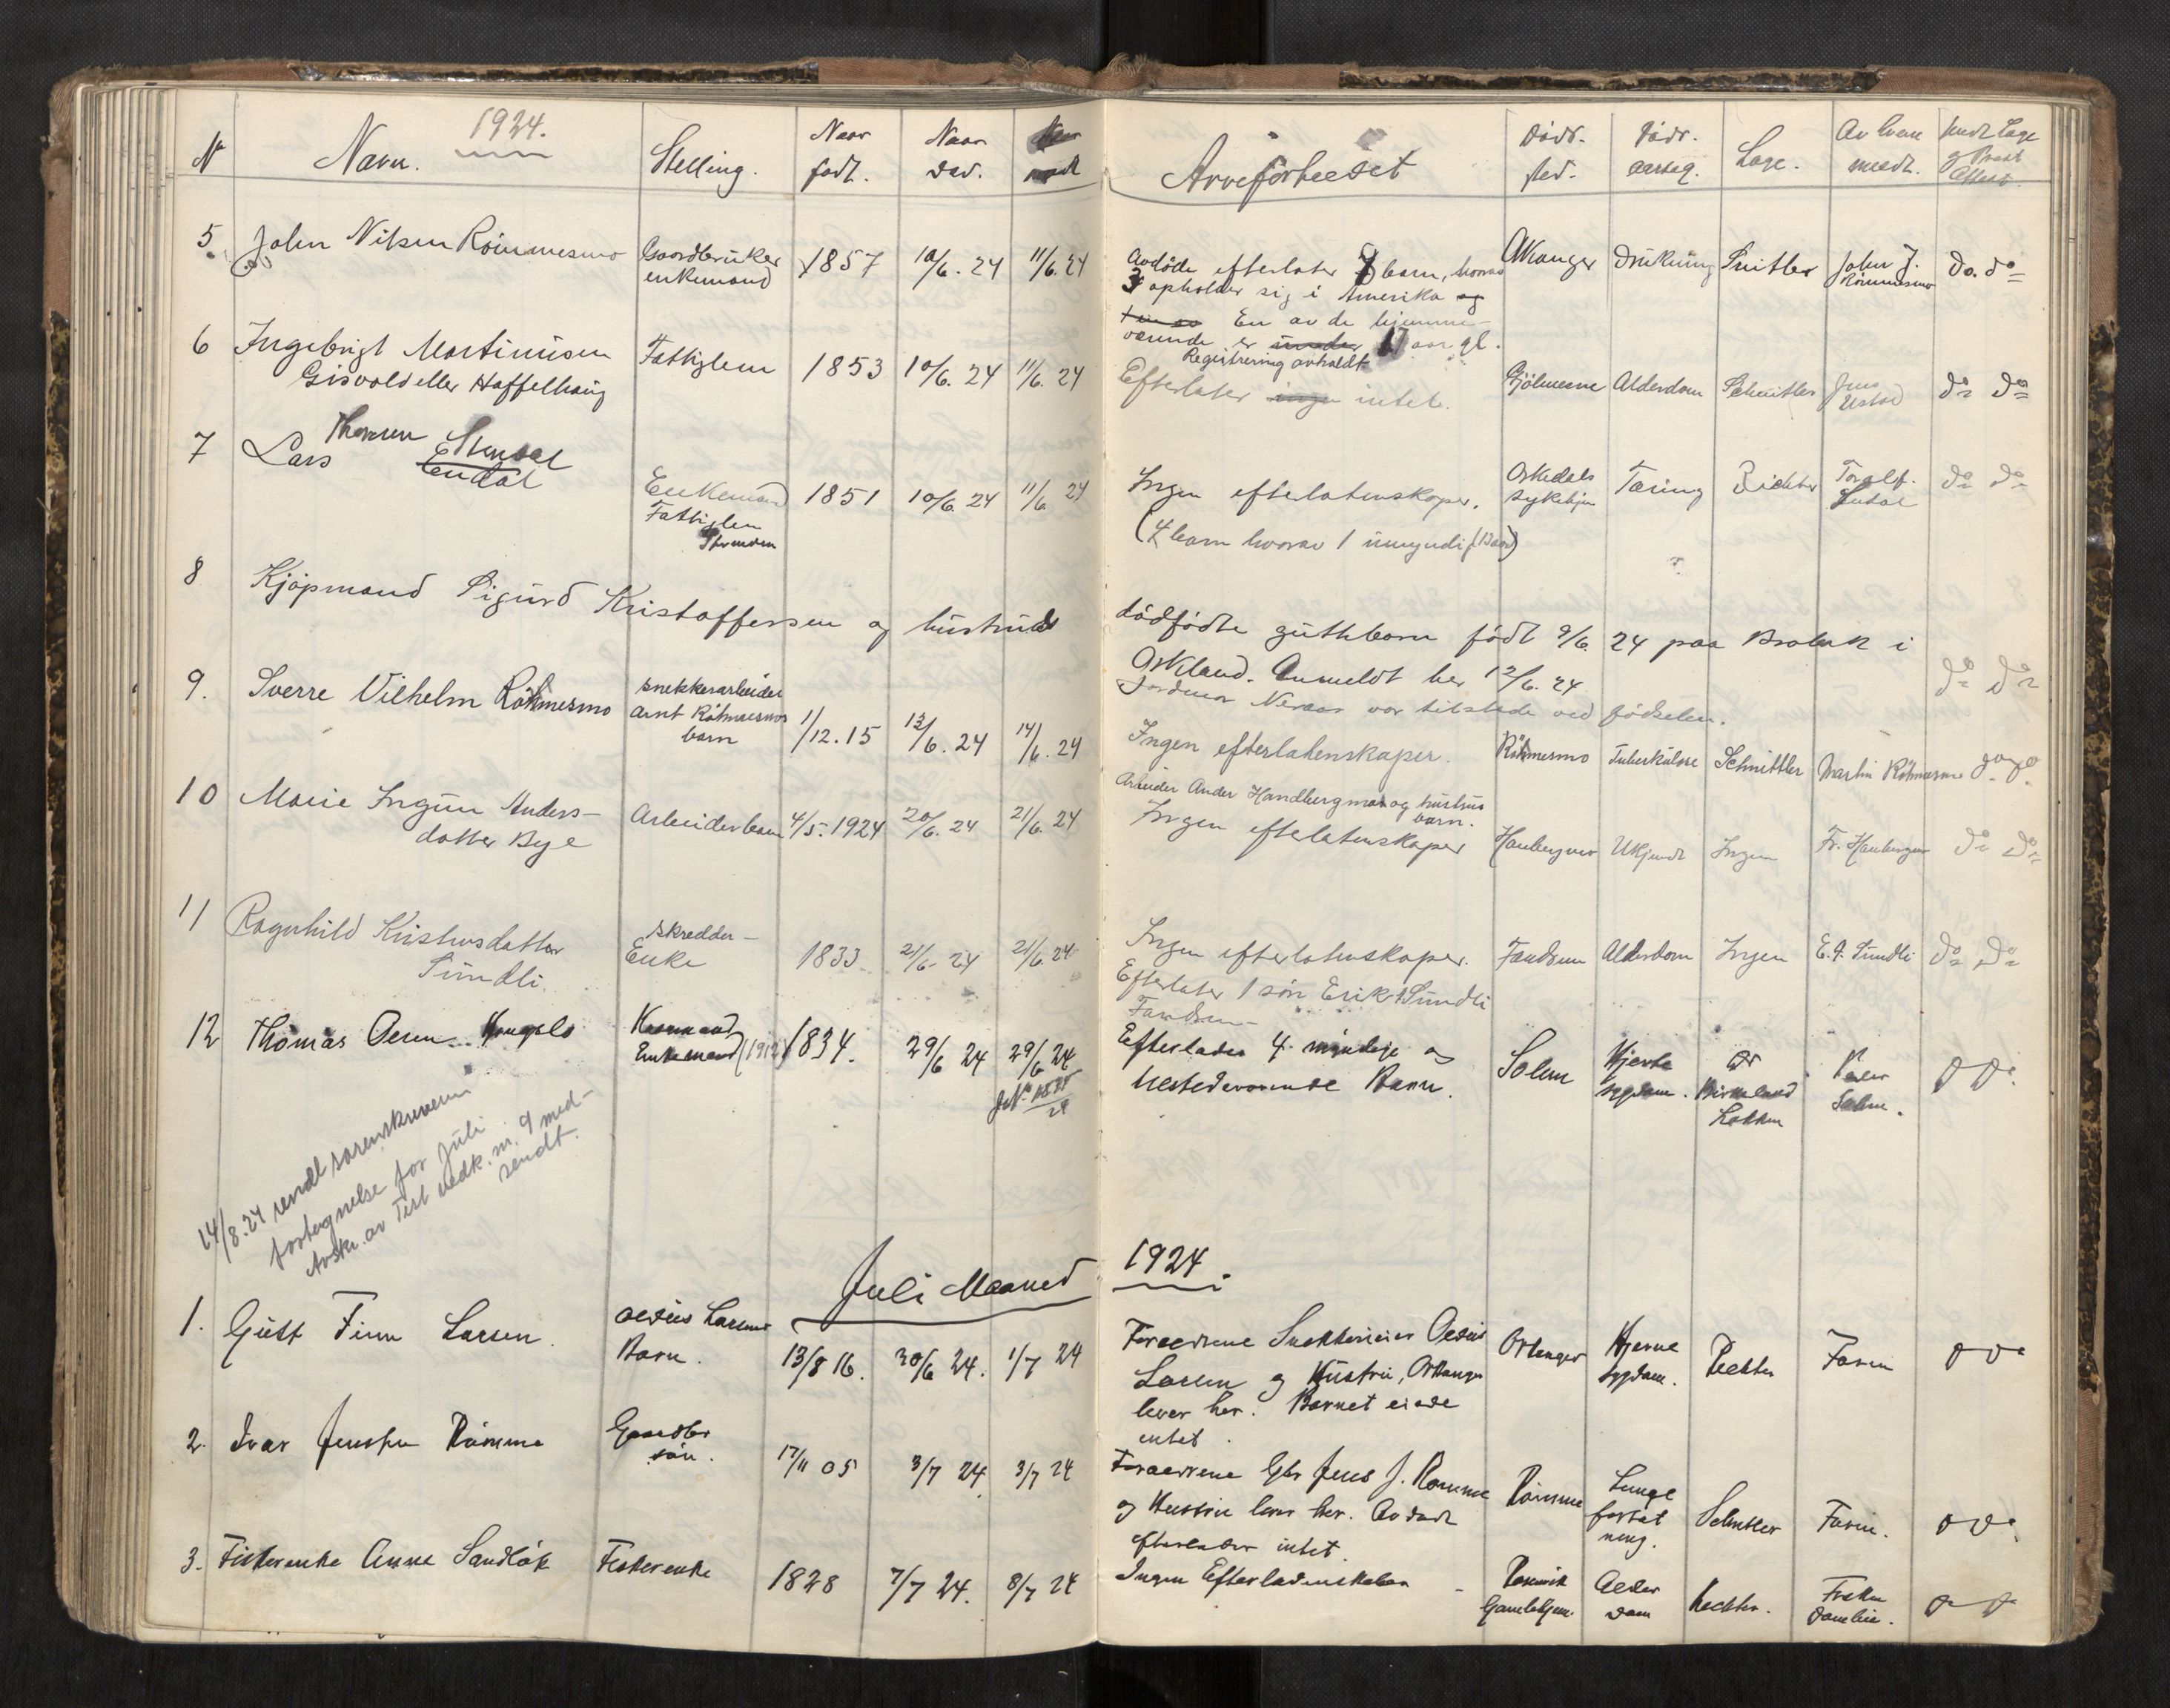 1924.
N Navn. Stilling. Naar født. Naar død.
Arveforholdet Døds. sted. Døds. aarsag. Læge. Av hvem meldt.
5 John Nilsen Römmesmo Gaardbruker enkemand 1857 10/6. 24 11/6. 24
Avdöde efterlater barn, hvorav
3 opholder sig i Amerika og
En av de hjemme-
værende er 17 aar gl.
Registrering avholdt
Orkanger Drukning John J. Römmesmo do. do
6 Ingebrigt Martinusen
Gisvold eller Hoffelhaug
Fattiglem 1853 10/6. 24 11/6. 24
Efterlater intet.
Gjölmesne Alderdom Schnitler Ustad do do
7 Lars Thomsen Stendal
Enkemand Fattiglem 1851 10/6. 24 11/6 24
Ingen efterlatenskaper.
(4 barn hvorav 1 umyndig
Orkedals sykehjem Tæring Richter Toralf do do
8 Kjöpmand Sigurd Kristoffersen og hustrus
dödfödte guttebarn födt 9/6. 24 paa Brobak i
Orkland. Anmeldt her 12/6. 24
Jordmor Neraas var tilstede ved födselen.
do do
9. Sverre Vilhelm Röhmesmo snekkerarbeider Arnt Röhmesmos barn 1/12. 15 13/6. 24 14/6. 24
Ingen efterlatenskaper.
Röhmesmo Tuberkulose Schnittler Martin Röhmesmo do do
10 Marie Ingun Anders-
datter Bye
Arbeiderbarn 4/5. 1924 20/6. 24 21/6. 24
Arbeider Ander Handbergmo og hustrus
barn.
Ingen efterlatenskaper
Ukjendt Ingen do do
11 Ragnhild Kristensdatter
Sundli.
skredder-
Enke 1833 21/6- 24 21/6. 24
Ingen efterlatenskaper.
Efterlater 1 sön Erik Sundli
Fandsem
Fandsem Alderdom Ingen E. Sundli do do
12 Thomas Oesen Kaarmand Enkemand (1912) 1834. 29/6 24 29/6 24
Efterlader 4 myndige og
tilstedeværende Barn.
Solem Hjerte sygdom. Dr Birkeland Løkken Peder Solem.
14/8. 24 sendt sorenskriveren
fortegnelse for juli
Avskr. av Test vedk. nr. 9 med-
sendt.
Juli Maaned
1924
1. Gutt Finn Larsen. Oedius Larsens
Barn. 13/8 16. 30/6 24. 1/7 24
Foraeldrene Snekkerieier Oedius
Larsen og Hustru, Orkanger
lever her. Barnet eiede
intet.
Orkanger Hjerne sygdom. Richter Faren
2. Ivar Jenssen Römme Gaardbr sön. 17/11 05 3/7 24 3/7 24
Foraeldrene Gbr Jens J. Römme
og Hustru lever her. Avdøde
efterlader intet.
Römme Lunge Schnitler Faren.
3. Fiskerenke Anne Sandløk Fiskerenke 1828 7/7 24. 8/7 24
Ingen Efterladenskaber
Rosenvik Gamlehjem. Alder dom Richter.